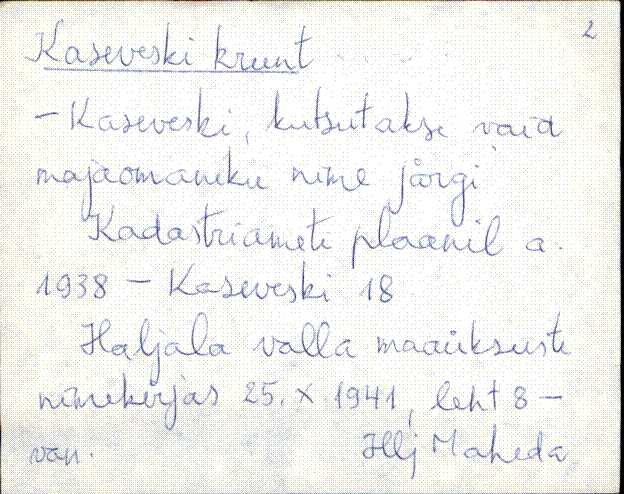 2
Kaseveski krunt
- Kaseveski, kutsutakse vaid
majaomaniku nime järgi
Kadastriameti plaanil a.
1938 - Kaseveski 18
Haljala valla maaüksuste
nimekirjas 25. X 1941, leht 8 -
van. Hlj Maheda